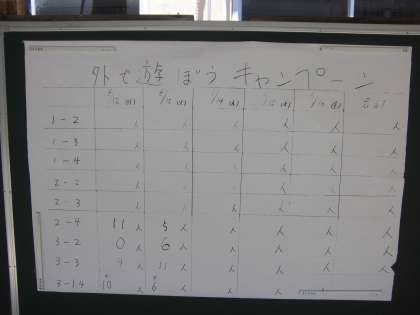 外で遊ぼうキャンペーン
1-2 人 人 人 人 人 人
1-3 人 人 人 人 人 人
1-4 人 人 人 人 人 人
2-2 人 人 人 人 人 人
2-3 人 人 人 人 人 人
2-4 11人 5人 人 人 人 人
3-2 0人 6人 人 人 人 人
3-3 人 11人 人 人 人 人
3-1.4 10人 6人 人 人 人 人